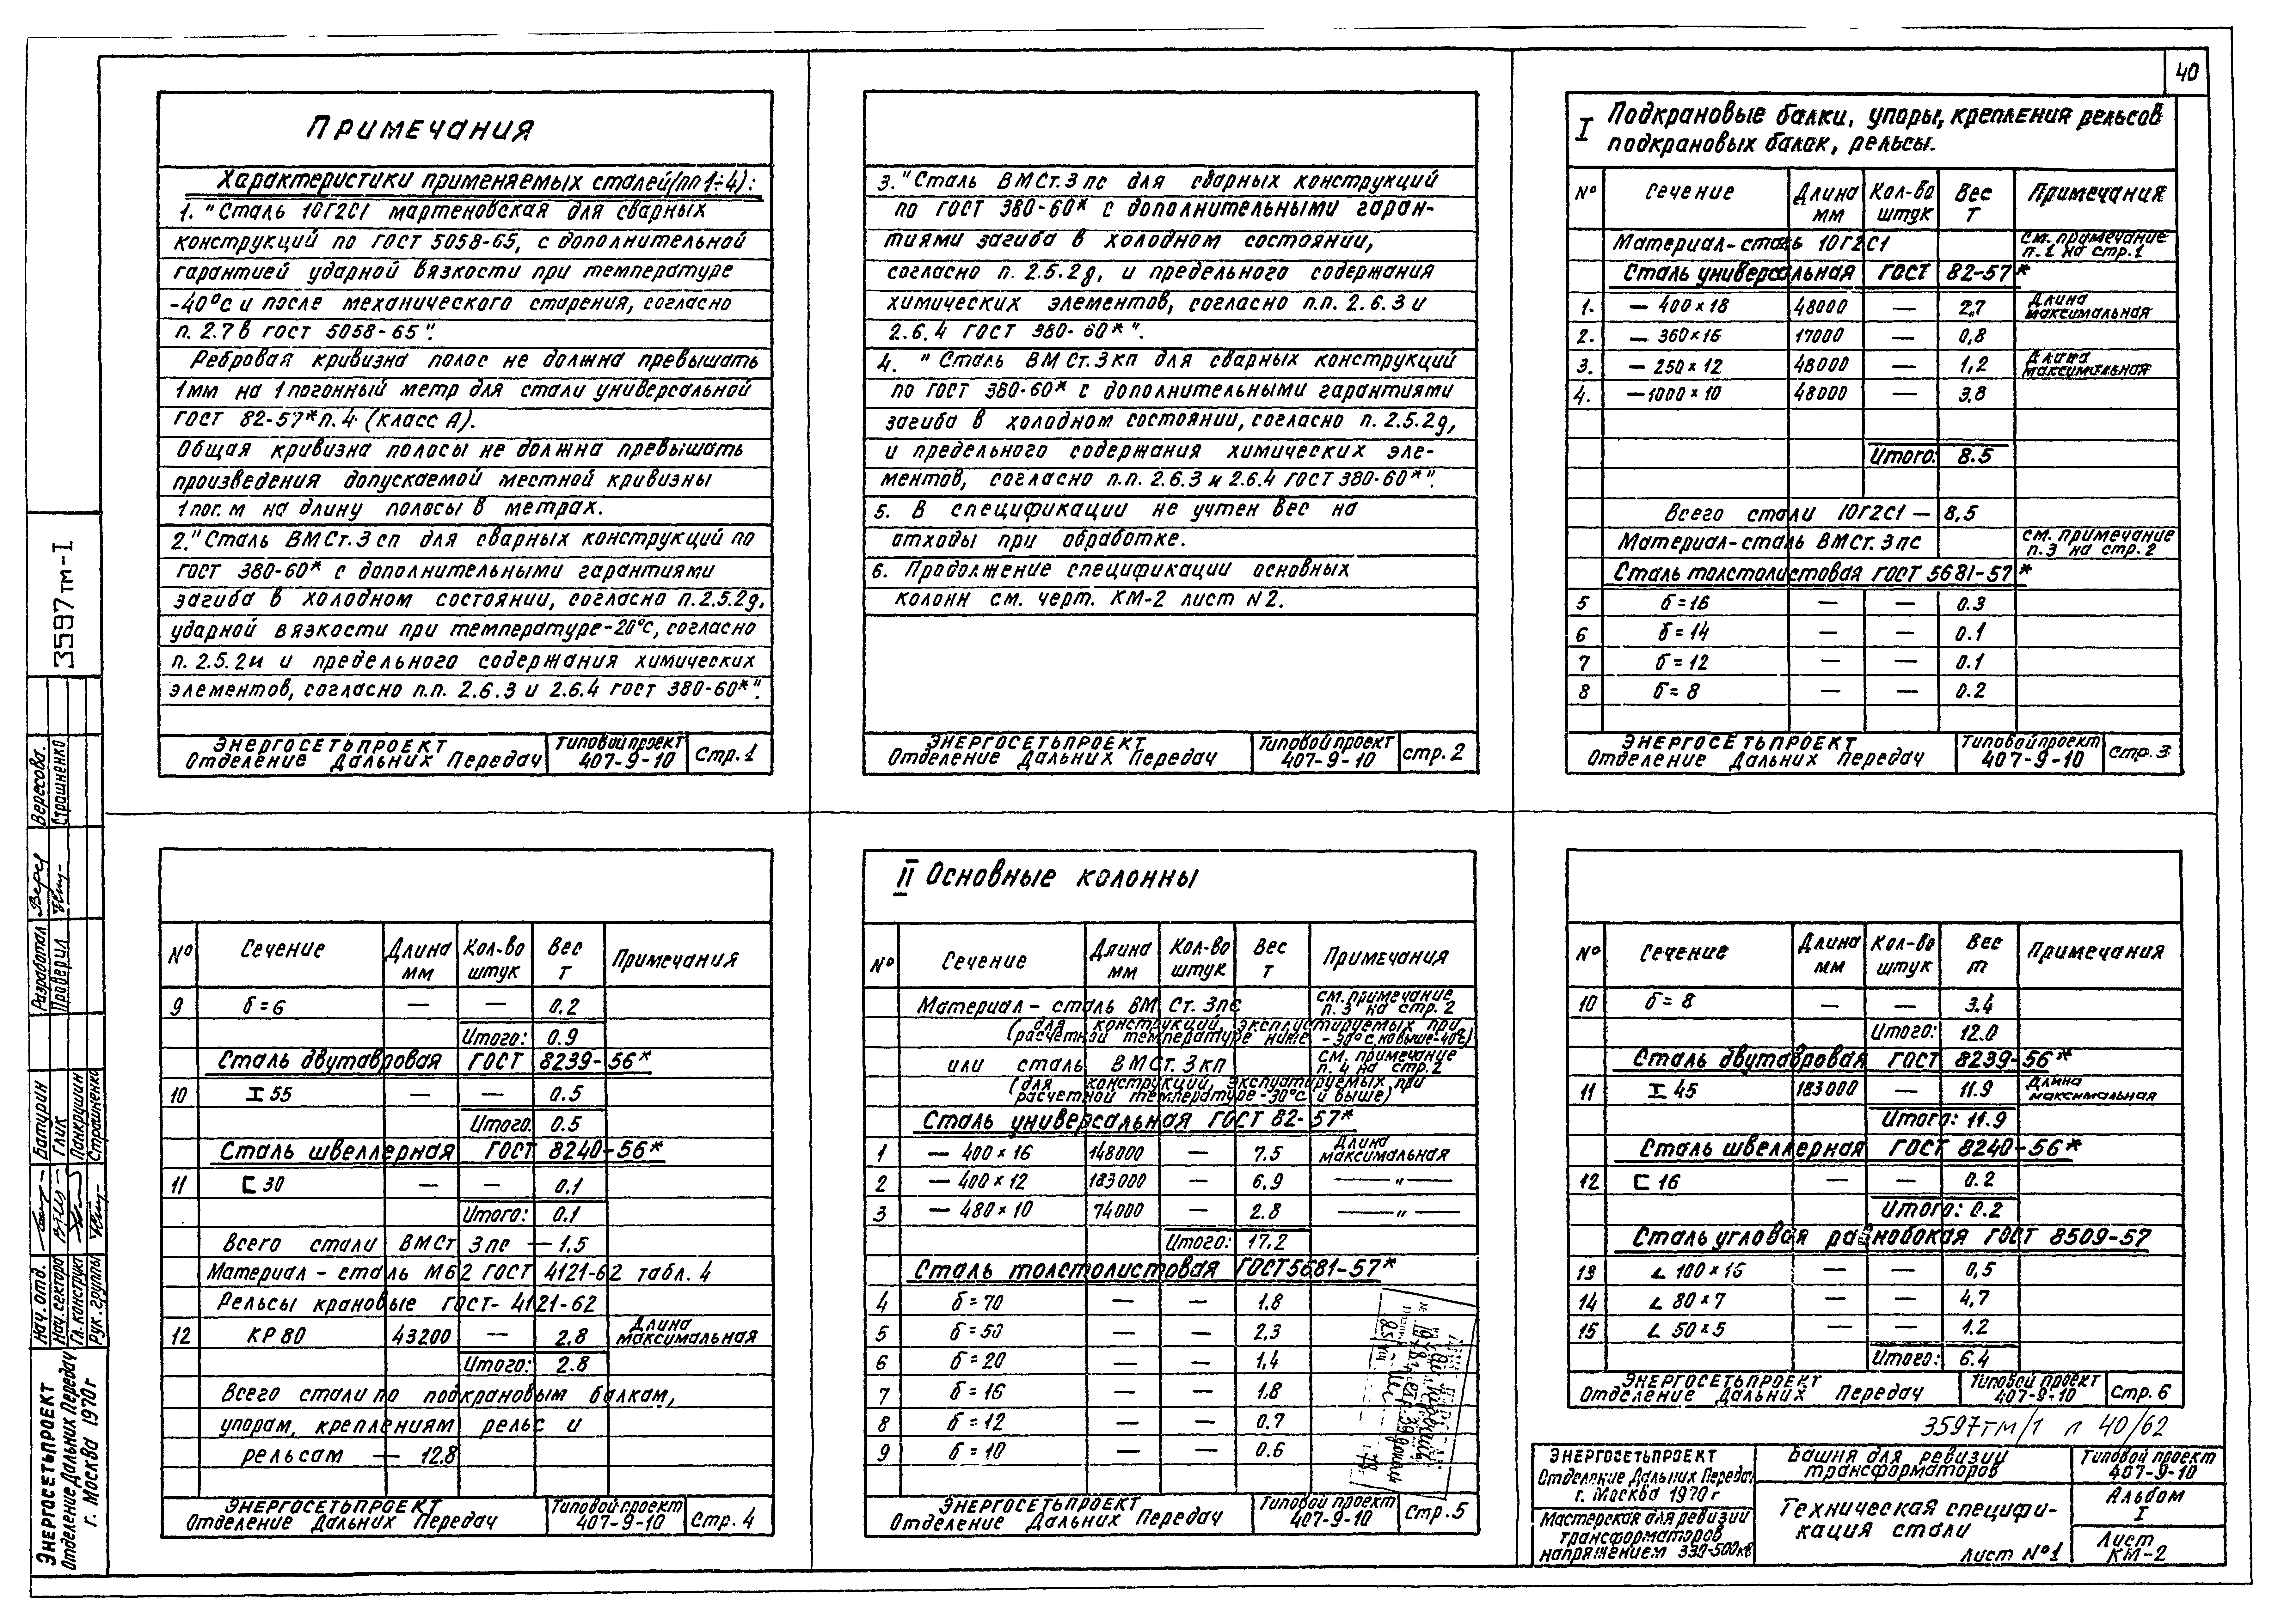 40
Примечания
Характеристики применяемых сталей (пп 1÷4):
1. "Сталь 10Г2С1 мартеновская для сварных
конструкций по ГОСТ 5058-65, с дополнительной
гарантией ударной вязкости при температуре
-40°с и после механического старения, согласно
п. 2.7в ГОСТ 5058-65".
Ребровая кривизна полос не должна превышать
1мм на 1 погонный метр для стали универсальной
ГОСТ 82-57* п.4 (класс А).
Общая кривизна полосы не должна превышать
произведения допускаемой местной кривизны
1 пог. м на длину полосы в метрах.
2. "Сталь ВМСт.3сп для сварных конструкций по
ГОСТ 380-60* с дополнительными гарантиями
загиба в холодном состоянии, согласно п.2.5.2д,
ударной вязкости при температуре-20°с, согласно
п. 2.5.2и и предельного содержания химических
элементов, согласно п.п. 2.6.3 и 2.6.4 ГОСТ 380-60*".
ЭНЕРГОСЕТЬПРОЕКТ
Отделение Дальних Передач
Типовой проект
407-9-10
Стр.1
3. "Сталь ВМСт.3пс для сварных конструкций
по ГОСТ 380-60* с дополнительными гаран-
тиями загиба в холодном состоянии,
согласно п. 2.5.2д, и предельного содержания
химических элементов, согласно п.п. 2.6.3 и
2.6.4 ГОСТ 380-60*".
4. "Сталь ВМСт.3кп для сварных конструкций
по ГОСТ 380-60* с дополнительными гарантиями
загиба в холодном состоянии, согласно п. 2.5.2д,
и предельного содержания химических эле-
ментов, согласно п.п. 2.6.3 и 2.6.4 ГОСТ 380-60*".
5. В спецификации не учтен вес на
отходы при обработке.
6. Продолжение спецификации основных
колонн см. черт. КМ-2 лист N2.
ЭНЕРГОСЕТЬПРОЕКТ
Отделение Дальних Передач
Типовой проект
407-9-10
стр. 2
I Подкрановые балки, упоры, крепления рельсов
подкрановых балок, рельсы.
№ Сечение Длина мм Кол-во штук Вес Т Примечания
Материал-сталь 10Г2С1 см. примечание п.1 на стр.1
Сталь универсальная ГОСТ 82-57*
1. — 400×18 48000 — 2,7 Длина максимальная
2. — 360×16 17000 — 0,8
3. — 250×12 48000 — 1,2 Длина максимальная
4. — 1000×10 48000 — 3.8
Итого: 8.5
Всего стали 10Г2С1 — 8,5
Материал-сталь ВМСт.3пс см. примечание п.3 на стр.2
Сталь толстолистовая ГОСТ 5681-57*
5 б=16 — — 0.3
6 б=14 — — 0.1
7 б=12 — — 0.1
8 б=8 — — 0.2
ЭНЕРГОСЕТЬПРОЕКТ
Отделение Дальних Передач
Типовой проект
407-9-10
Стр.3
№ Сечение Длина мм Кол-во штук Вес Т Примечания
9 б=6 — — 0.2
Итого: 0.9
Сталь двутавровая ГОСТ 8239-56*
10 I 55 — — 0.5
Итого. 0.5
Сталь швеллерная ГОСТ 8240-56*
11 [ 30 — — 0.1
Итого: 0.1
Всего стали ВМСт 3пс — 1.5
Материал-сталь М62 ГОСТ 4121-62 табл. 4
Рельсы крановые ГОСТ-4121-62
12 КР80 43200 — 2.8 Длина максимальная
Итого: 2.8
Всего стали по подкрановым балкам,
упорам, креплениям рельс и
рельсам — 12.8
ЭНЕРГОСЕТЬПРОЕКТ
Отделение Дальних Передач
Типовой проект
407-9-10
Стр. 4
II Основные колонны
№ Сечение Длина мм Кол-во штук Вес Т Примечания
Материал-сталь ВМ Ст.3пс см. примечание п.3 на стр.2
(для конструкций, эксплуатируемых при
расчетной температуре ниже -30°с, но выше-40°с)
или сталь ВМСт.3кп см. примечание п.4 на стр.2
(для конструкций, экспуатируемых при
расчетной температуре-30°с и выше)
Сталь универсальная ГОСТ 82-57*
1 — 400×16 148000 — 7.5 Длина максимальная
2 — 400×12 183000 — 6.9 — " —
3 — 480×10 74000 — 2.8 — " —
Итого: 17.2
Сталь толстолистовая ГОСТ5681-57*
4 б=70 — — 1.8
5 б=50 — — 2,3
6 б=20 — — 1,4
7 б=16 — — 1.8
8 б=12 — — 0.7
9 б=10 — — 0.6
ЭНЕРГОСЕТЬПРОЕКТ
Отделение Дальних Передач
Типовой проект
407-9-10
Стр.5
№ Сечение Длина мм Кол-во штук Вес т Примечания
10 б=8 — — 3.4
Итого: 12.0
Сталь двутавровая ГОСТ 8239-56*
11 I 45 183000 — 11.9 Длина максимальная
Итого: 11.9
Сталь швеллерная ГОСТ 8240-56*
12 [ 16 — — 0.2
Итого: 0.2
Сталь угловая равнобокая ГОСТ 8509-57
13 ∟ 100×16 — — 0,5
14 ∟ 80×7 — — 4,7
15 ∟ 50×5 — — 1.2
Итого: 6.4
ЭНЕРГОСЕТЬПРОЕКТ
Отделение Дальних Передач
Типовой проект
407-9-10
Стр. 6
3597тм/1 л 40/62
ЭНЕРГОСЕТЬПРОЕКТ
Отделение Дальних Передач
г. Москва 1970г
Мастерская для ревизии
трансформаторов
напряжением 330-500кв
Башня для ревизии
трансформаторов
Техническая специфи-
кация стали
Лист №1
Типовой проект
407-9-10
Альбом
I
Лист
КМ-2
3597тм-I
Разработал Верес Вересова.
Проверил Страшненко
Нач. отд. Батурин
Нач. сектора Глак
Гл. конструкт Панкрушин
Рук. группы Страшненко
ЭНЕРГОСЕТЬПРОЕКТ
Отделение Дальних Передач
г. Москва 1970г